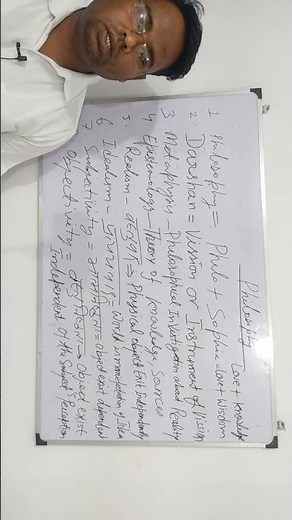 Philosophy Love + Knowledge
1 Philosophy = Philo + Sophia Love + Wisdom
2. Darshan = Vission or Instrument of Vission
3 Metaphysis Philosophical Investigation about Reality
4 Epistemology Theory of knowledge Sources
5. Realism - वस्तुवाद ⇒ Physical object Exit Independently
6 Idealism - प्रत्ययवाद = World is manifestation of Idea
7 Subjectivity = आत्मनिष्ठता = Object exist dependent
Objectivity = वस्तुनिष्ठता ⇒ Object exist
Independent of the Subject Perception